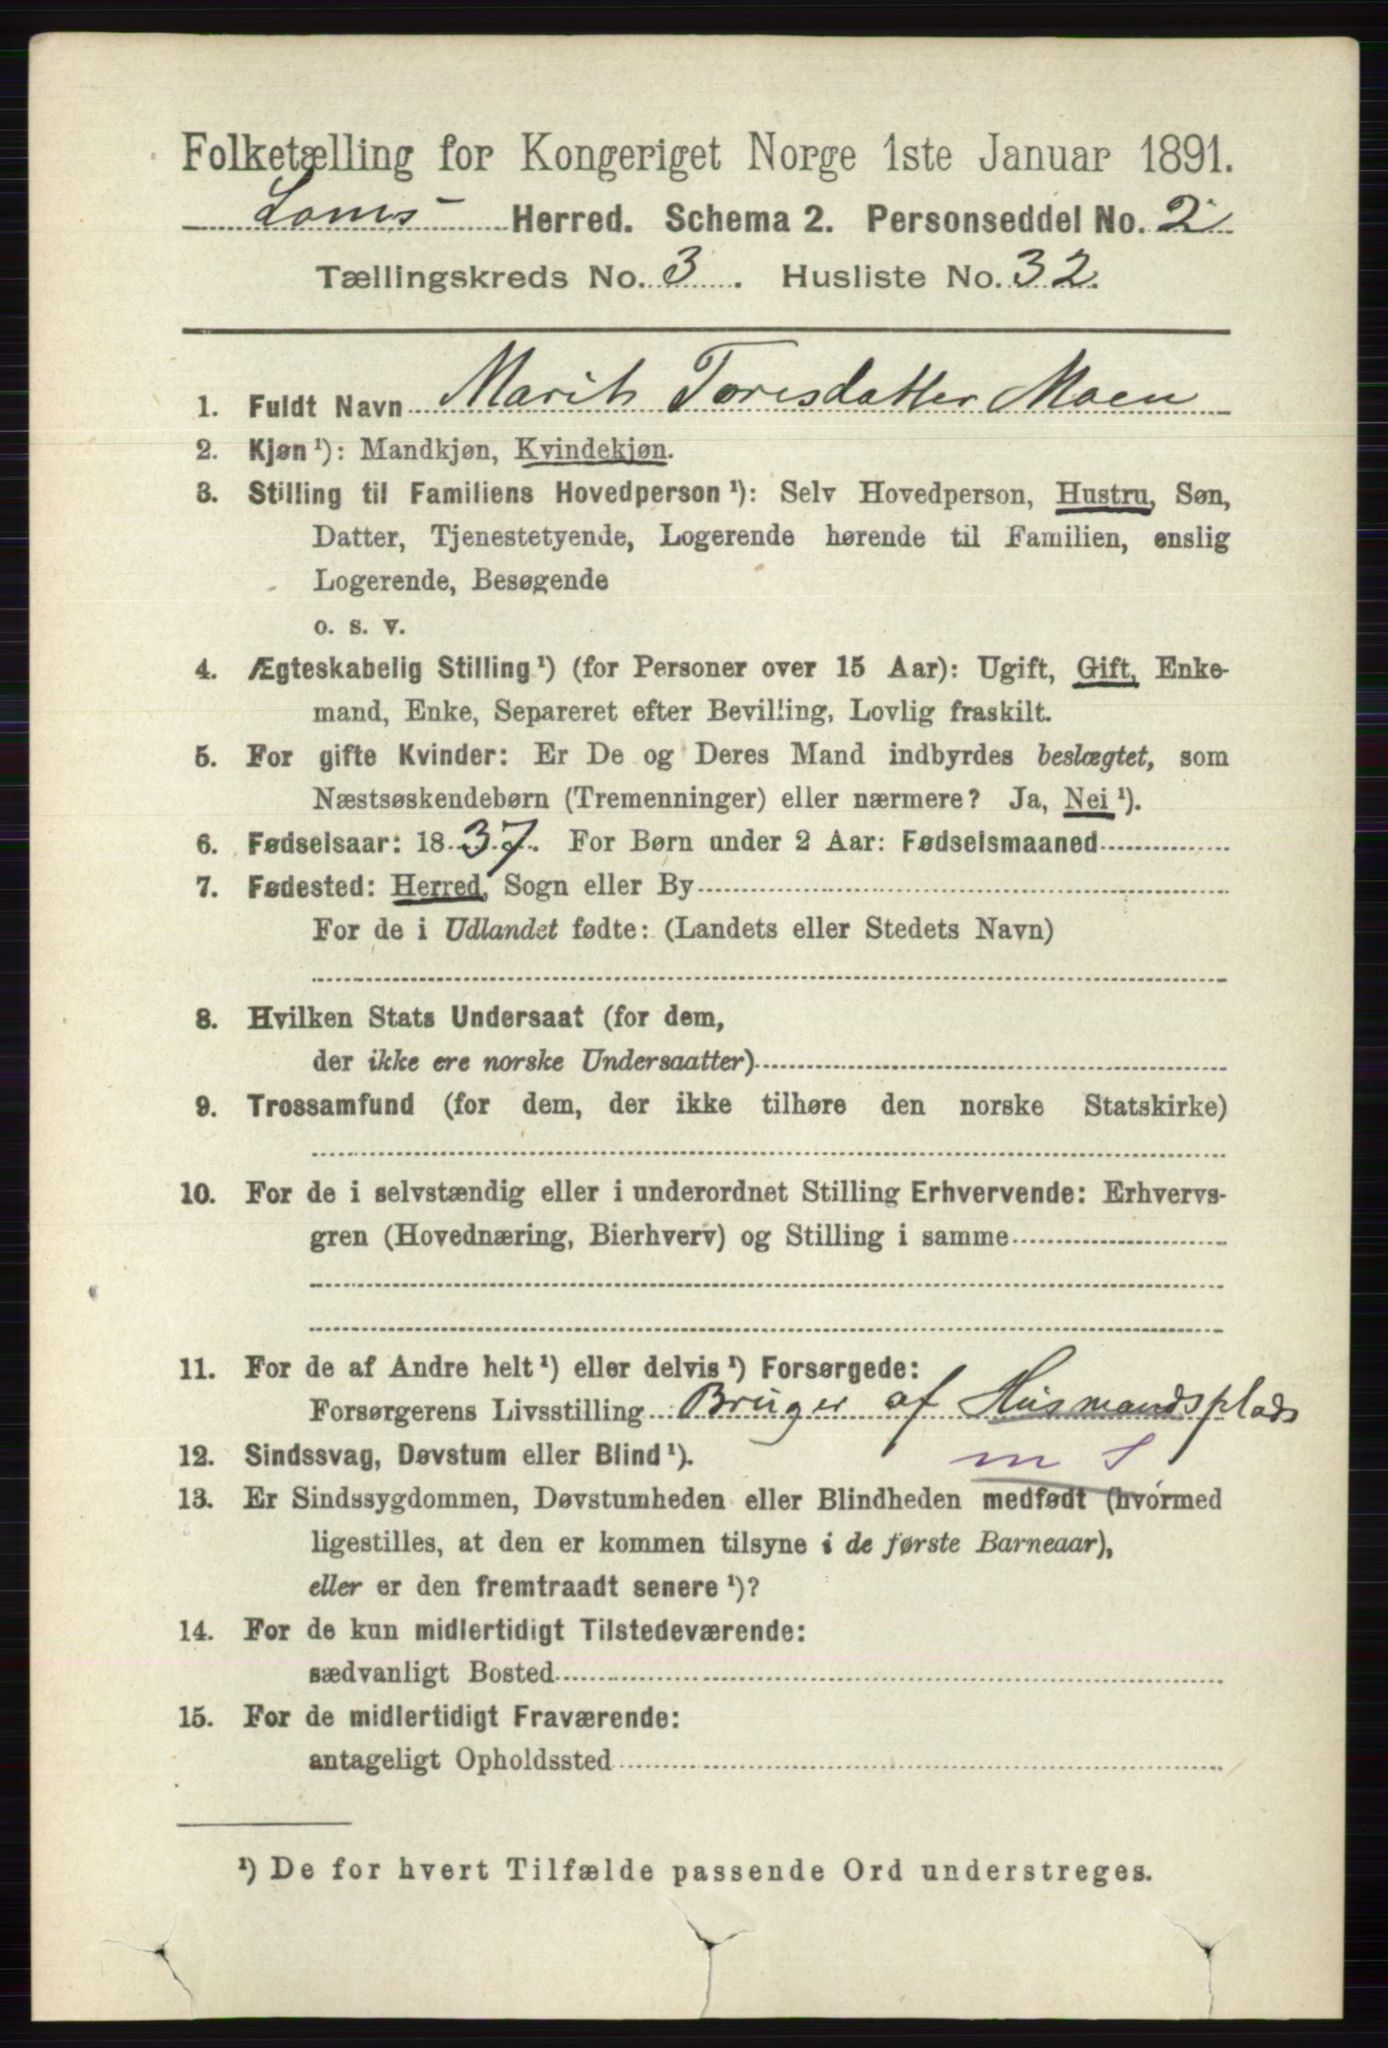 Folketælling for Kongeriget Norge 1ste Januar 1891.
Loms Herred. Schema 2. Personseddel No. 2
Tællingskreds No. 3. Husliste No. 32.
1. Fuldt Navn Marit Toresdatter Moen
2. Kjøn¹): Mandkjøn, Kvindekjøn.
3. Stilling til Familiens Hovedperson¹): Selv Hovedperson, Hustru, Søn,
Datter, Tjenestetyende, Logerende hørende til Familien, enslig
Logerende, Besøgende
o. s. v.
4. Ægteskabelig Stilling¹) (for Personer over 15 Aar): Ugift, Gift, Enke-
mand, Enke, Separeret efter Bevilling, Lovlig fraskilt.
5. For gifte Kvinder: Er De og Deres Mand indbyrdes beslægtet, som
Næstsøskendebørn (Tremenninger) eller nærmere? Ja, Nei¹).
6. Fødselsaar: 1837. For Børn under 2 Aar: Fødselsmaaned
7. Fødested: Herred, Sogn eller By
For de i Udlandet fødte: (Landets eller Stedets Navn)
8. Hvilken Stats Undersaat (for dem,
der ikke ere norske Undersaatter)
9. Trossamfund (for dem, der ikke tilhøre den norske Statskirke)
10. For de i selvstændig eller i underordnet Stilling Erhvervende: Erhvervs-
gren (Hovednæring, Bierhverv) og Stilling i samme
11. For de af Andre helt¹) eller delvis¹) Forsørgede:
Forsørgerens Livsstilling Bruger af Husmandsplads
12. Sindssvag, Døvstum eller Blind¹). m S
13. Er Sindssygdommen, Døvstumheden eller Blindheden medfødt (hvormed
ligestilles, at den er kommen tilsyne i de første Barneaar),
eller er den fremtraadt senere¹)?
14. For de kun midlertidigt Tilstedeværende:
sædvanligt Bosted
15. For de midlertidigt Fraværende:
antageligt Opholdssted
¹) De for hvert Tilfælde passende Ord understreges.